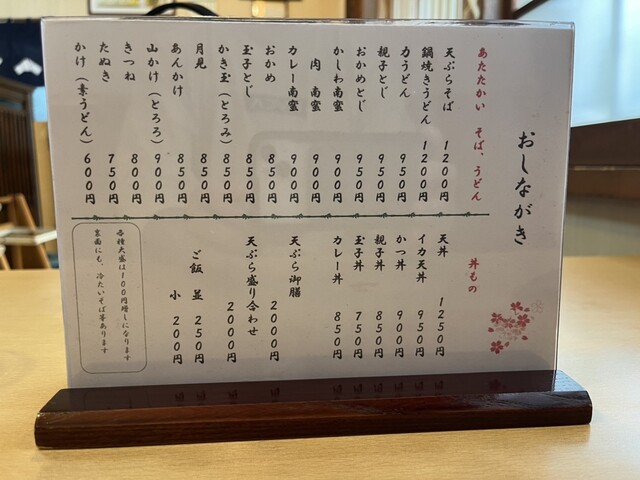 おしながき
あたたかい そば、うどん
天ぷらそば 1200円
鍋焼きうどん 1200円
力うどん 950円
親子とじ 950円
おかめとじ 950円
かしわ南蛮 900円
肉 南蛮 900円
カレー南蛮 900円
おかめ 850円
玉子とじ 850円
かき玉(とろみ) 850円
月見 850円
あんかけ 850円
山かけ(とろろ) 900円
きつね 800円
たぬき 750円
かけ(素うどん) 600円
丼もの
天丼 1250円
イカ天丼 950円
かつ丼 900円
親子丼 850円
玉子丼 750円
カレー丼 850円
天ぷら御膳 2000円
天ぷら盛り合わせ 2000円
ご飯 並 250円
小 200円
各種大盛は100円増しになります
裏面にも、冷たいそば等あります